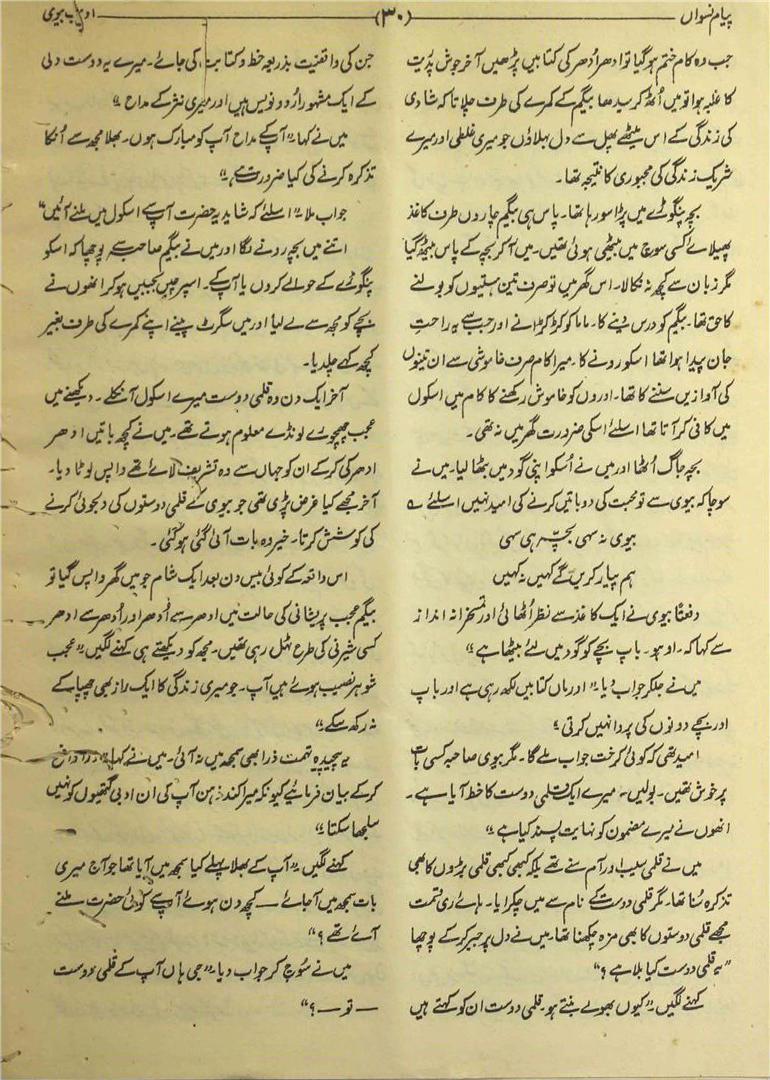 پیام نسواں
(۳۰)
ادیب بیوی
جب وہ کام ختم ہو گیا تو ادھر اُدھر کی کتابیں پڑھیں آخر جوش پدریت
کا غلبہ ہوا تو میں اُٹھ کر سیدھا بیگم کے کمرے کی طرف چلا تاکہ شادی
کی زندگی کے اس میٹھے پھل سے دل بہلاؤں جو میری غلطی اور میرے
شریک زندگی کی مجبوری کا نتیجہ تھا۔
بچہ پنگوڑے میں پڑا سو رہا تھا۔ پاس ہی بیگم چاروں طرف کاغذ
پھیلائے کسی سوچ میں بیٹھی ہوئی تھیں۔ میں آ کر بچہ کے پاس بیٹھ گیا
مگر زبان سے کچھ نہ نکالا۔ اس گھر میں تو صرف تین ہستیوں کو بولنے
کا حق تھا۔ بیگم کو درس دینے کا۔ ماما کو کڑکڑانے اور جب سے یہ راحت
جان پیدا ہوا تھا اسکو رونے کا۔ میرا کام صرف خاموشی سے ان تینوں
کی آوازیں سننے کا تھا۔ اوروں کو خاموش رکھنے کا کام میں اسکول
میں کافی کر آتا تھا اسلئے اسکی ضرورت گھر میں نہ تھی۔
بچہ جاگ اُٹھا اور میں نے اُسکو اپنی گود میں بٹھا لیا۔ میں نے
سوچا کہ بیوی سے تو محبت کی دو باتیں کرنے کی امید نہیں اسلئے ؎
بیوی نہ سہی بچّہ ہی سہی
ہم پیار کریں گے کہیں نہ کہیں
دفعتًا بیوی نے ایک کاغذ سے نظر اُٹھائی اور تمسخرانہ انداز
سے کہا کہ۔ اوہو۔ باپ بچے کو گود میں لئے بیٹھا ہے“
میں نے جلکر جواب دیا ”اور ماں کتابیں لکھ رہی ہے اور باپ
اور بچے دونوں کی پروا نہیں کرتی“
امید تھی کہ کوئی کرخت جواب ملے گا۔ مگر بیوی صاحبہ کسی بات
پر خوش تھیں۔ بولیں ”میرے ایک قلمی دوست کا خط آیا ہے۔
انھوں نے میرے مضمون کو نہایت پسند کیا ہے“
میں نے قلمی سیب اور آم سنے تھے بلکہ کبھی کبھی قلمی بڑوں کا بھی
تذکرہ سُنا تھا۔ مگر قلمی دوست کے نام سے میں چکرایا۔ ہائے ری قسمت
مجھے قلمی دوستوں کا بھی مزہ چکھنا تھا۔ میں نے دل پر جبر کر کے پوچھا
”یہ قلمی دوست کیا بلا ہے؟“
کہنے لگیں ”کیوں بھولے بنتے ہو۔ قلمی دوست ان کو کہتے ہیں
جن کی واقفیت بذریعہ خط و کتابت کی جائے۔ میرے یہ دوست دلی
کے ایک مشہور اُردو نویس ہیں اور میری نثر کے مداح“
میں نے کہا ”آپ کے مداح آپ کو مبارک ہوں۔ بھلا مجھ سے اُنکا
تذکرہ کرنے کی کیا ضرورت ہے“
جواب ملا ”اسلئے کہ شاید یہ حضرت آپ سے اسکول میں ملنے آئیں“
اتنے میں بچہ رونے لگا اور میں نے بیگم صاحب سے پوچھا کہ اسکو
پنگوڑے کے حوالے کروں یا آپ کے۔ اسپر چیں بجبیں ہو کر انھوں نے
بچے کو مجھ سے لے لیا اور میں سگرٹ پینے اپنے کمرے کی طرف بغیر
کچھ کہے چلدیا۔
آخر ایک دن وہ قلمی دوست میرے اسکول آ نکلے۔ دیکھنے میں
عجب چھچورے لونڈے معلوم ہوتے تھے۔ میں نے کچھ باتیں ادھر
ادھر کی کر کے ان کو جہاں سے وہ تشریف لائے تھے واپس لوٹا دیا۔
آخر مجھے کیا غرض پڑی تھی جو بیوی کے قلمی دوستوں کی دلجوئی کرنے
کی کوشش کرتا۔ خیر وہ بات آئی گئی ہو گئی۔
اس واقعہ کے کوئی بیس دن بعد ایک شام جو میں گھر واپس گیا تو
بیگم عجب پریشانی کی حالت میں ادھر سے اُدھر اور اُدھر سے ادھر
کسی شیرنی کی طرح ٹہل رہی تھیں۔ مجھ کو دیکھتے ہی کہنے لگیں ”عجب
شوہر نصیب ہوئے ہیں آپ۔ جو میری زندگی کا ایک راز بھی چھپا کے
نہ رکھ سکے“
یہ پیچیدہ تہمت ذرا بھی سمجھ میں نہ آئی۔ میں نے کہا ”ذرا واضح
کر کے بیان فرمائیے کیونکہ میرا کند ذہن آپ کی ان ادبی گتھیوں کو نہیں
سلجھا سکتا“
کہنے لگیں ”آپ کے بھلا پہلے کیا سمجھ میں آیا تھا جو آج میری
بات سمجھ میں آ جائے — کچھ دن ہوئے آپ سے کوئی حضرت ملنے
آئے تھے؟“
میں نے سوچ کر جواب دیا ”جی ہاں آپ کے قلمی دوست
— تو — ؟“